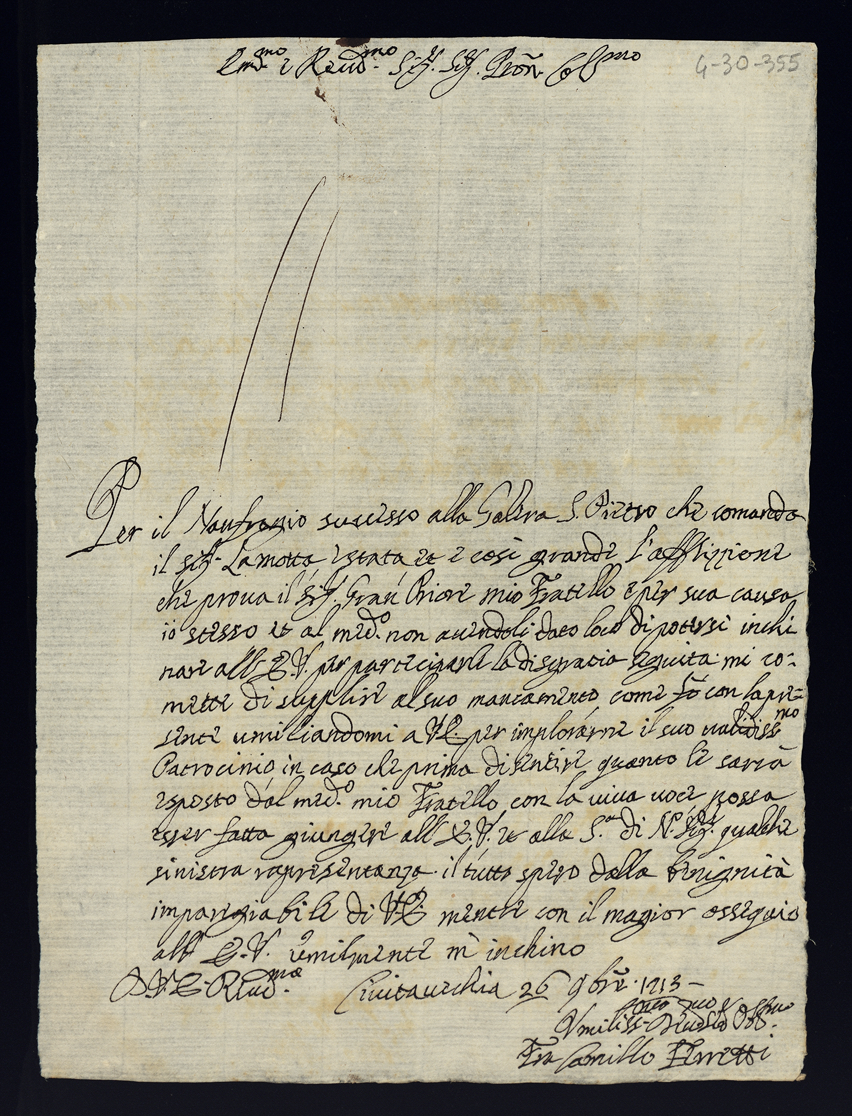 Em.mo e Reud.mo Sig.r Sig.r Prõn Col.mo
4-30-355
Per il Naufragio successo alla Galera S. Pietro che comanda
il Sig.r Lamotta è stata et è così grande l'afflizzione
che proua il Sig.r Gran Priore mio Fratello e per sua causa
io stesso et al med.o non auendoli dato loco di potersi inchi
nare all'E.V. per participarle la disgratia seguita mi co-
mette di supplire al suo mancamento come fò con la pre-
sente umiliandomi a V.E. per implorarne il suo ualidiss.mo
Patrocinio in caso che prima di sentire quanto le sarrà
esposto dal med.o mio Fratello con la uiua uoce possa
esser fatta giungere all'E.V. et alla S.tà di N. Sig.re qualche
sinistra rapresentanza. il tutto spero dalla benignità
impareggiabile di V.E. mentre con il magior ossequio
all'E.V. umilmente m'inchino
D.V.E. Reud.ma Ciuitauechia 26 9bre 1713-
Vmiliss.mo Deuot.mo Obb.mo
Fra Camillo Ferretti